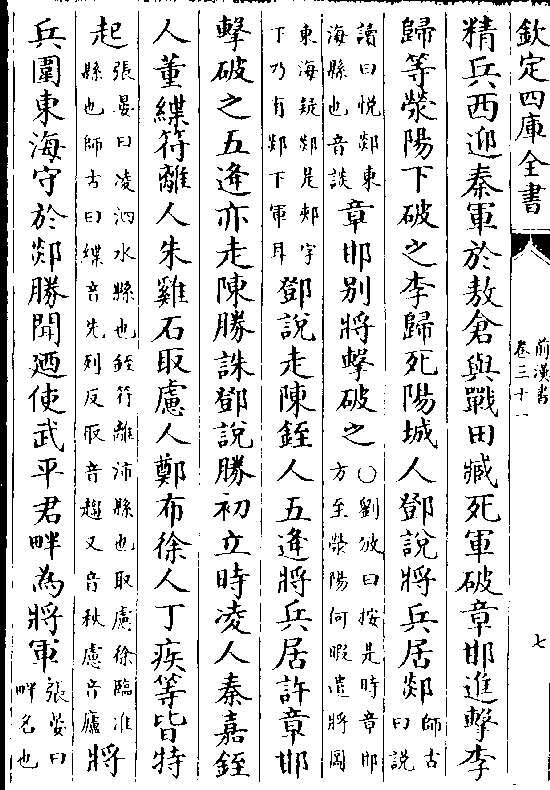 欽定四庫全書
前漢書
卷三十一
七
精兵西迎秦軍於敖倉與戰田臧死軍破章邯進擊李
歸等滎陽下破之李歸死陽城人鄧說將兵居郯
師古
曰說
讀曰悅郯東
海縣也音談
章邯別將擊破之
○劉攽曰按是時章邯
方至滎陽何暇遣將圖
東海疑郯是郟字
下乃有郯下軍耳
鄧說走陳銍人五逢將兵居許章邯
擊破之五逢亦走陳勝誅鄧說勝初立時凌人秦嘉銍
人董緤符離人朱雞石取慮人鄭布徐人丁疾等皆特
起
張晏曰凌泗水縣也銍符離沛縣也取慮徐臨淮
縣也師古曰緤音先列反取音趨又音秋慮音廬
將
兵圍東海守於郯勝聞廼使武平君畔為將軍
張晏曰
畔名也